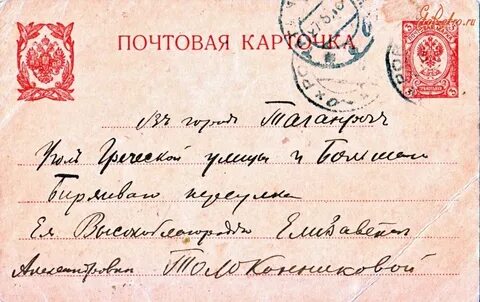 ПОЧТОВАЯ КАРТОЧКА
Въ городъ Таганрогъ
Уголъ Греческой улицы и Большого
Биржевого переулка
Ея Высокоблагородію Елизаветѣ
Александровнѣ Толоконниковой